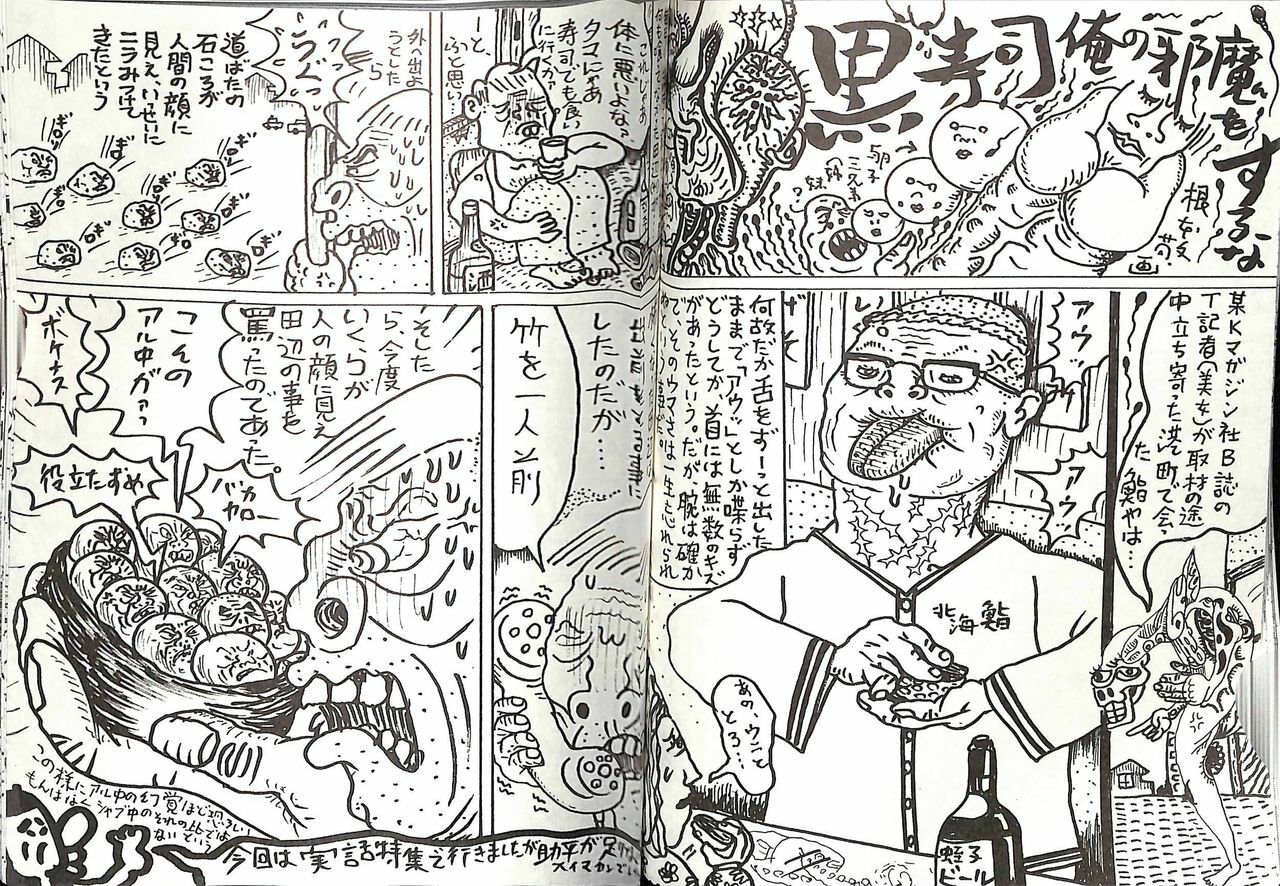 黒寿司
俺の邪魔をするな
根本敬
画
卵子
三兄弟
妹
某Kマガジン社B誌の
T記者(美女)が取材の途
中立ち寄った港町で会っ
た鮨やは…
アウッ
アウッ
何故だか舌をずーっと出した
ままで「アウッ」としか喋らず
どうしてか首には無数のキズ
があったという。だが、腕は確か
で、そのウマさは一生忘れられ
北海鮨
あの、ウニと
とろ…
蛭子
ビール
体に悪いよな?
タマにゃあ
寿司でも食い
に行くか?
と、
ふと思い…
酒
外の出よ
うとした
ら
道ばたの
石ころが
人間の顔に
見え、いっせいに
ニラみつけて
きたという
ぎろり
ぎろり
ぎろり
したのだが…
竹を一人前
そした
ら、今度
いくらが
人の顔に見え
田辺の事を
罵ったのであった。
このの
アル中がァっ
ボケナス
役立たずめ
バカ
ヤロー
この様にアル中の幻覚は
もんはなくシャブ中のそれの比では
ないという
今回は「実」話特集で行きましたが